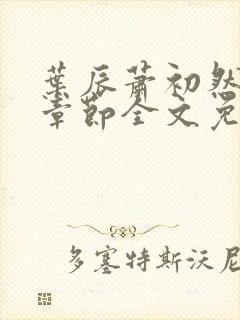 葉辰蕭初然
章節全文免
多塞特斯沃尼